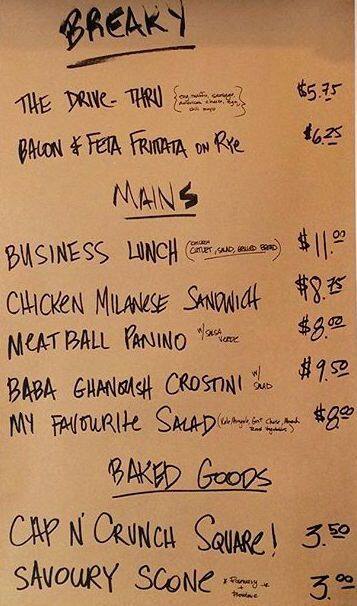 BREAKY
THE DRIVE-THRU (egg muffin, sausage, american cheese, egg, chili mayo) $5.75
BACON & FETA FRITTATA ON RYE $6.25
MAINS
BUSINESS LUNCH (CHICKEN CUTLET, SALAD, GRILLED BREAD) $11.00
CHICKEN MILANESE SANDWICH $8.75
MEATBALL PANINO w/ SALSA VERDE $8.00
BABA GHANOUSH CROSTINI w/ SALAD $9.50
MY FAVOURITE SALAD (Kale/Arugula, Goat Cheese, Almonds, Roast Vegetables) $8.00
BAKED GOODS
CAP N' CRUNCH SQUARE! 3.50
SAVOURY SCONE * Rosemary + Provolone * 3.00